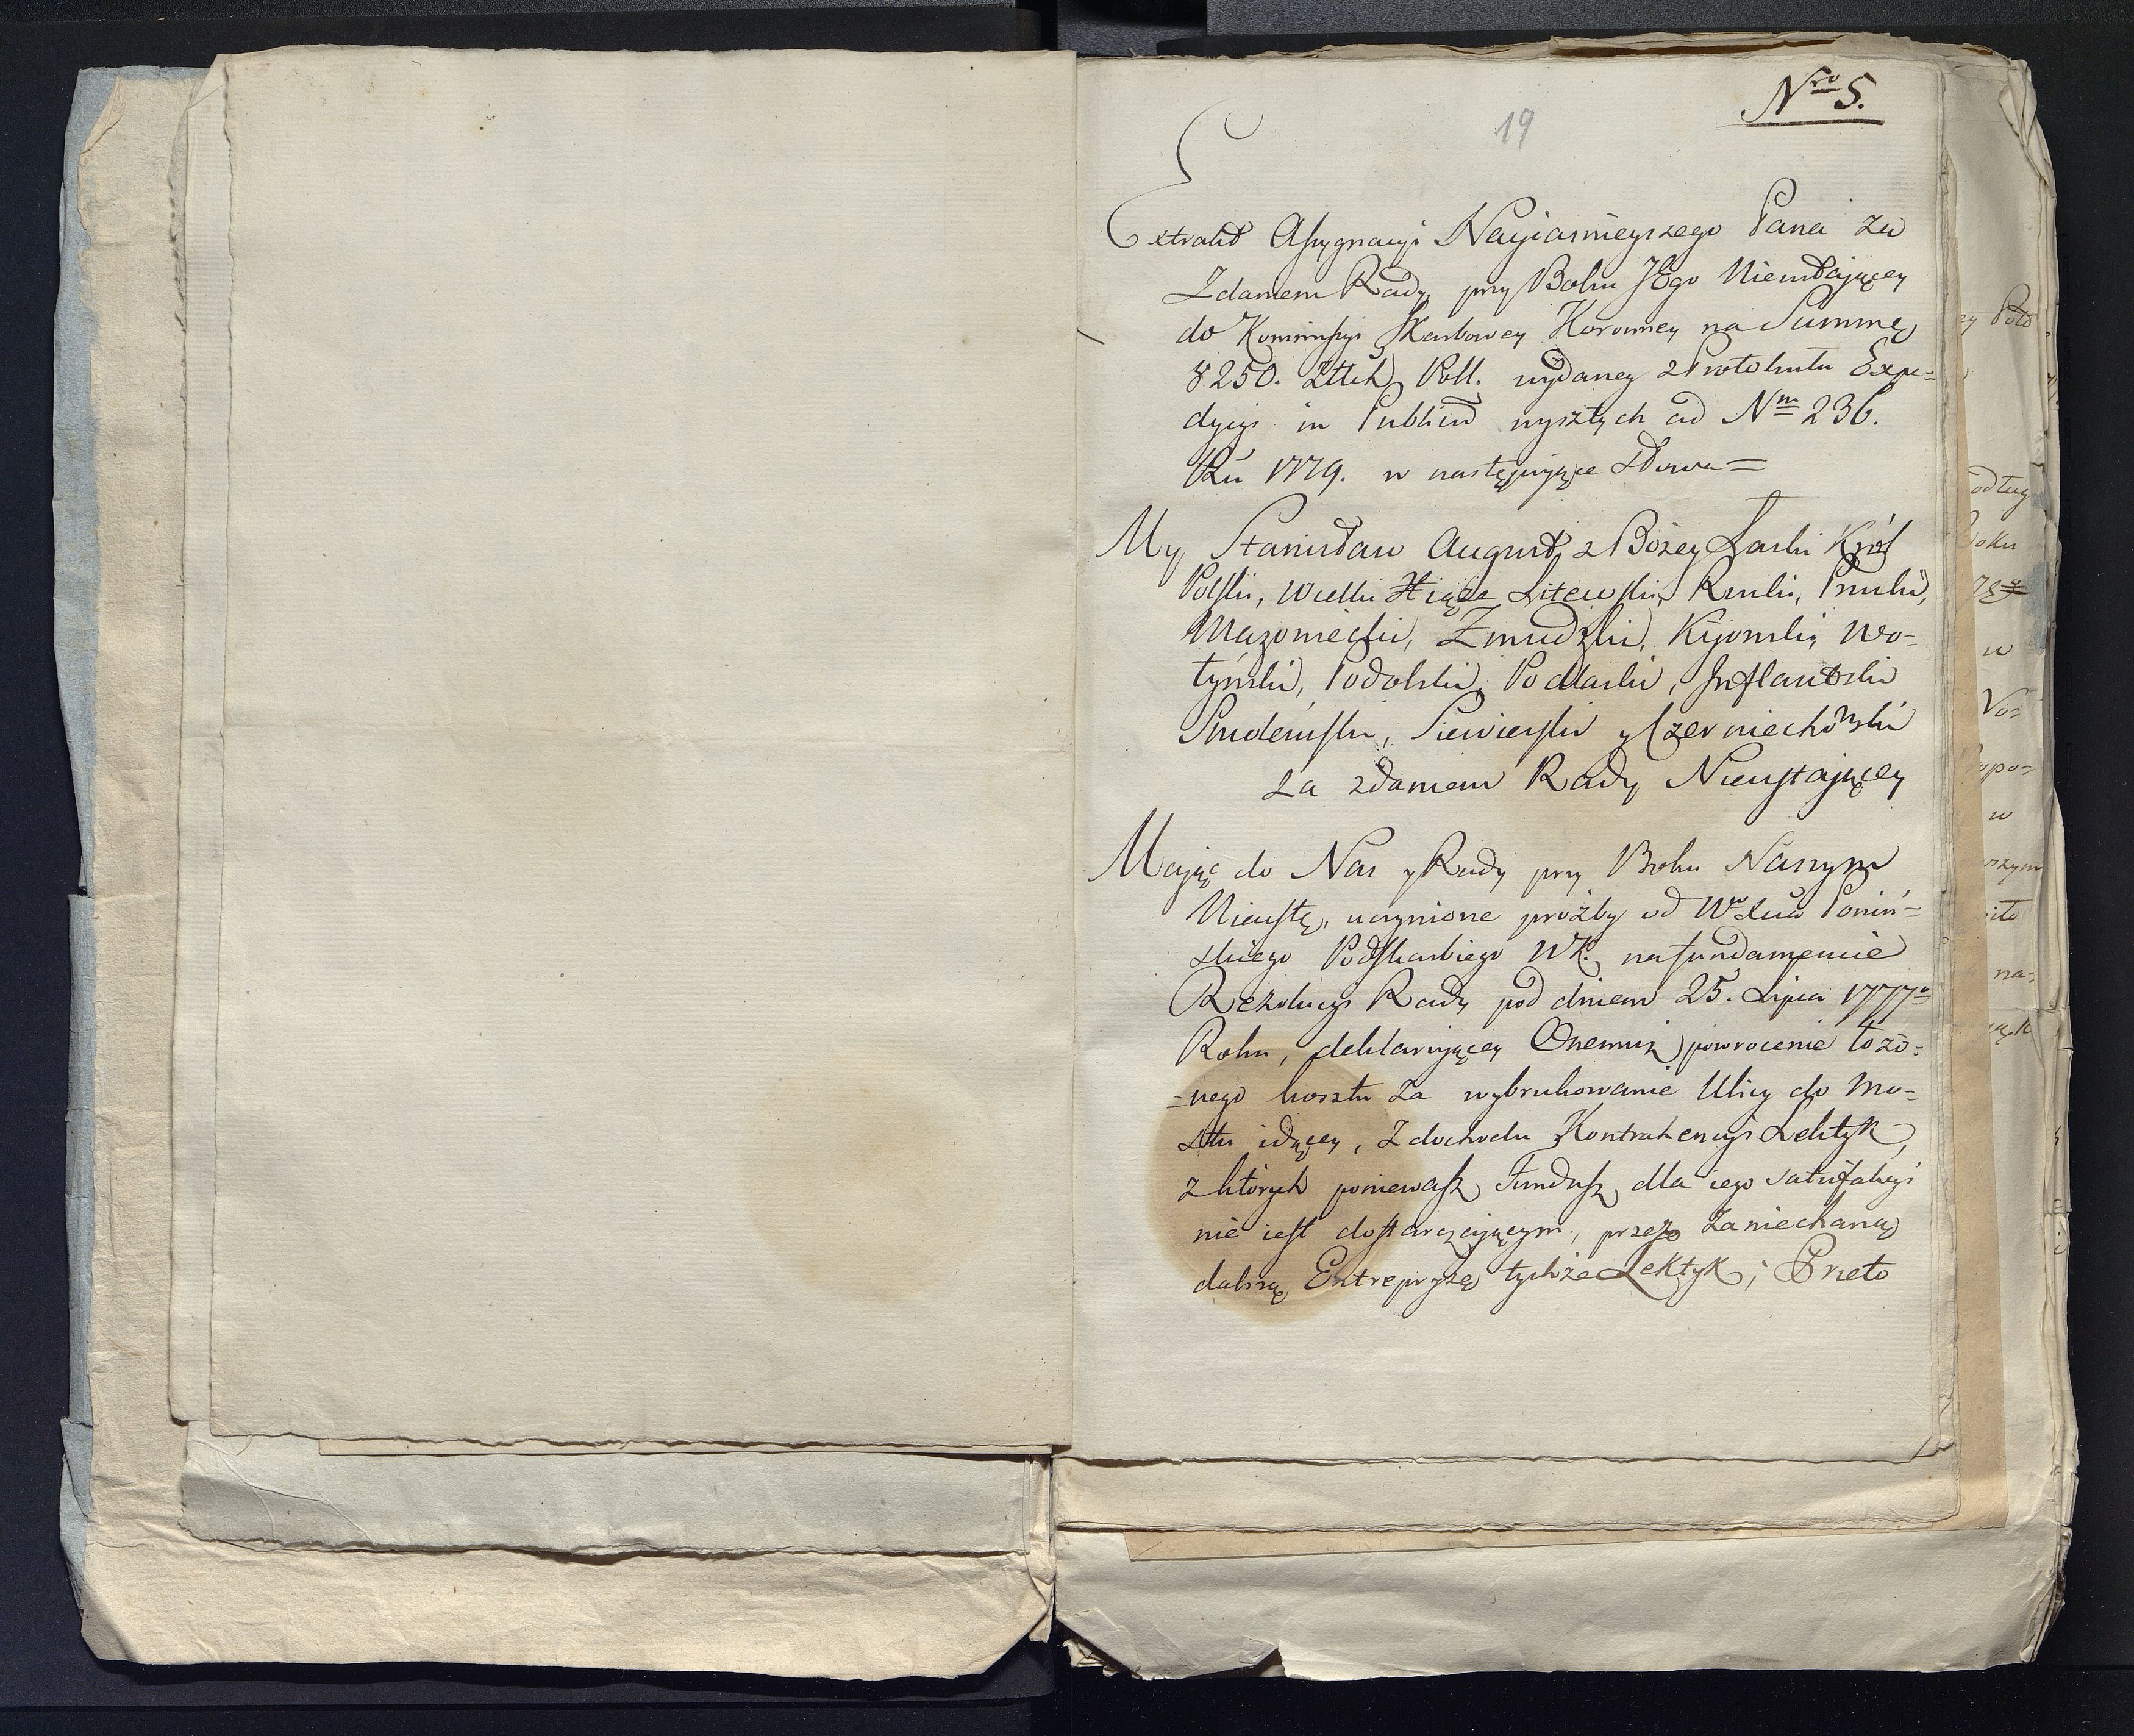 Nro 5.
19
Extrakt Assygnacyi Nayiasnieyszego Pana za
Zdaniem Rady przy Boku JEgo Nieustaiącey
do Kommissyi Skarbowey Koronney na Summę
8250. Złtch Poll. wydaney z Protokułu Expe=
dycyi in Publicum wyszłych ad Nm 236.
Rku 1779. w następuiące Słowa=
My Stanisław August z Bożey Łaski Król
Polski, Wielki Xiąże Litewski, Ruski, Pruski,
Mazowiecki, Zmudzki, Kijowski, Wo=
łyński, Podolski, Podlaski, Inflantski
Smoleński, Siewierski y Czerniechowski
za zdaniem Rady Nieustaiącey
Maiąc do Nas y Rady przy Boku Naszym
Nieustą. uczynione prożby od Wo Xcia Poniń=
skiego Podskarbiego WK. na fundamencie
Rezolucyi Rady pod dniem 25. Lipca 1777o
Roku, deklaruiącey Onemuż powrocenie łożo=
=nego kosztu za wybrukowanie Ulicy do Mo=
stu idącey, z dochodu Kontrahencyi Lektyk,
z których ponieważ Fundusz dla iego satisfakcyi
nie iest dostarczaiącym, przez zaniechaną
dalszą Entrepryzę tychże Lektyk; Przeto
ey Potd
odług
Roku
w
Vo=
opo=
w
szym
na=